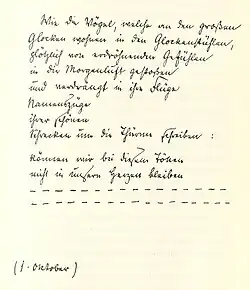 Wie die Vögel, welche an den großen
Glocken wohnen in den Glockenstühlen,
plötzlich von erdröhnenden Gefühlen
in die Morgenluft gestoßen
und verdrängt in ihre Flüge
Namenszüge
ihrer schönen
Schrecken um die Thürme schreiben :
können wir bei diesem Tönen
nicht in unsern Herzen bleiben
(1. Oktober)